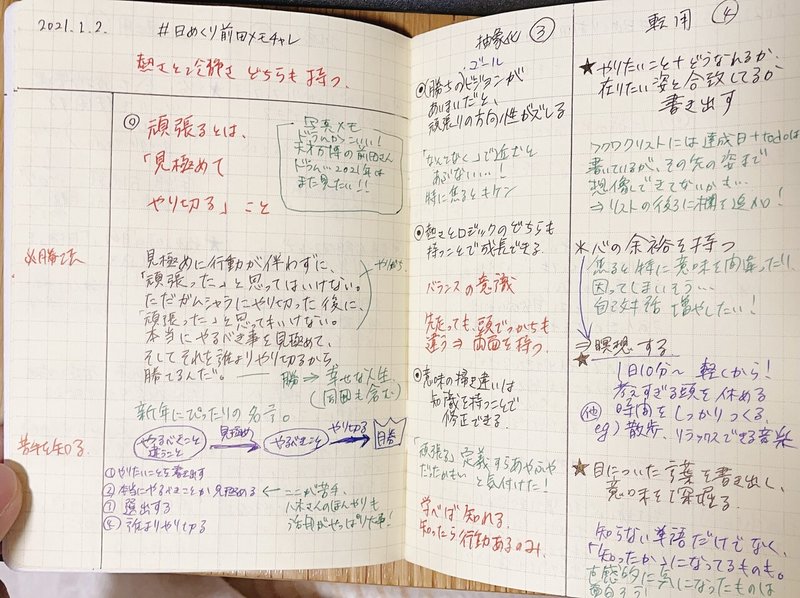 2021.1.2.
#日めくり前田メモチャレ
熱さと冷静さ どちらも持つ、
⑨ 頑張るとは、
「見極めて
やり切る」こと
写真メモ
ドラムかっこいい!
ドラム… 2021年は
また見たい!!
必勝法
見極めに行動が伴わずに、
「頑張った」と思ってはいけない。
ただガムシャラにやり切った後に、
「頑張った」と思ってもいけない。
本当にやるべき事を見極めて、
そしてそれを誰よりやり切るから
勝てるんだ。
勝 ⇒ 幸せな人生
(周囲も含む)
新年にぴったりの名言。
苦手を知る
やるべきこと
違うこと
見極め
やるべきこと
やり切る
勝
①やりたいことを書き出す
②本当にやるべきことか見極める
←ここが苦手、
③
④誰よりやり切る
抽象化 ③
ゴール
●(勝ちの)ビジョンが
あいまいだと、
頑張りの方向性がズレる
「なんとなく」で進むと
あぶない…!
特に焦るとキケン
●熱さとロジックのどちらも
持つことで成長できる
バランスの意識
先走っても、頭でっかちも
違う ⇒ 両面を持つ、
●意味の掃き違いは
知識を持つことで
修正できる。
「頑張る」定義すらあやふや
だったかもい と気付けた!
学べば知れる
知ったら行動あるのみ
転用 ④
★やりたいこと+どうなれるか、
在りたい姿と合致してるか
書き出す
ワクワクリストには達成日+todoは
書いているが、その先の姿まで
想像しできてないかも…
⇒リストの後ろに欄を追加!
*心の余裕を持つ
焦ると特に意味を間違ったり、
困ってしまいそう…
自己対話 増やしたい!
⇒瞑想する
★
1日10分〜 軽くから!
考えすぎる頭を休める
他 時間をしっかりつくる、
eg) 散歩、リラックスできる音楽
★目についた言葉を書き出し、
意味を深堀る
知らない単語だけでなく、
「知ったか」になってるものも。
直感的に気になったものは
面白そう!